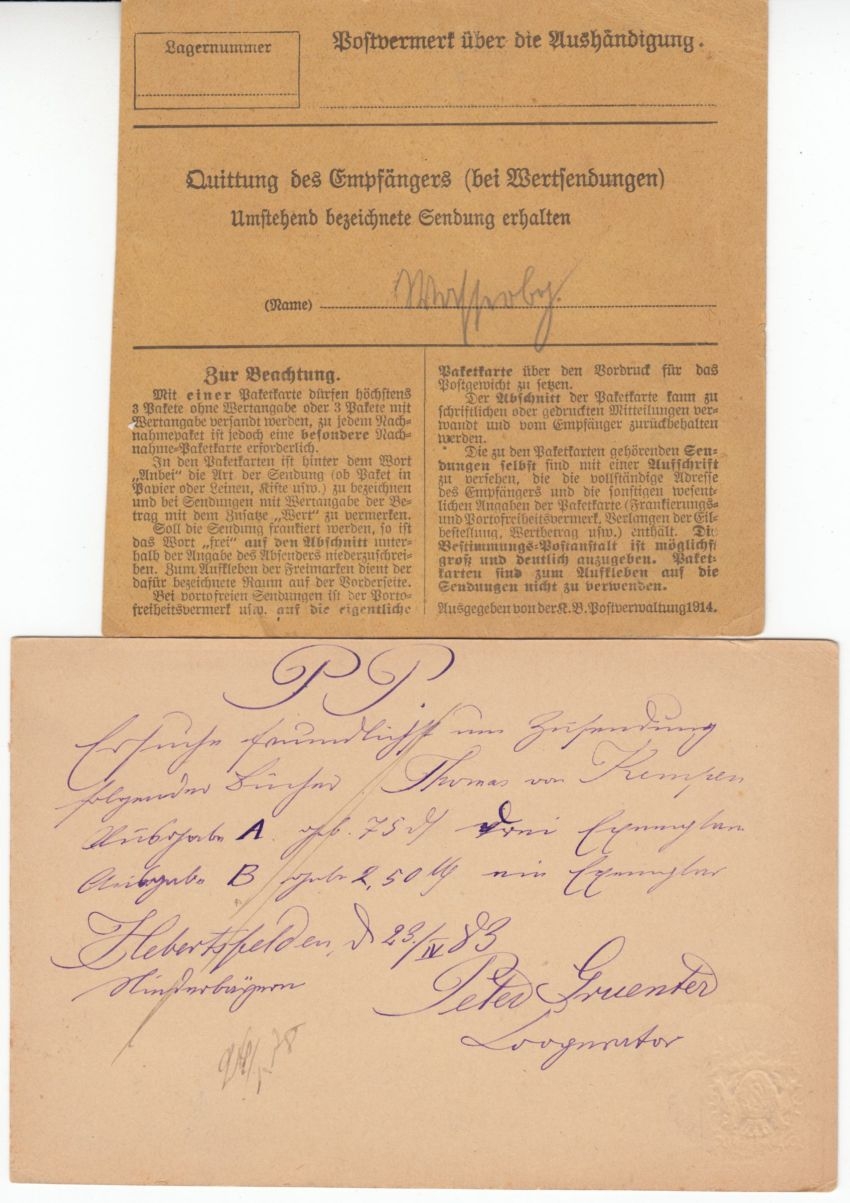 Lagernummer
Postvermerk über die Aushändigung.
Quittung des Empfängers (bei Wertsendungen)
Umstehend bezeichnete Sendung erhalten
(Name)
Zur Beachtung.
Mit einer Paketkarte dürfen höchstens
3 Pakete ohne Wertangabe oder 3 Pakete mit
Wertangabe versandt werden, zu jedem Nach-
nahmepaket ist jedoch eine besondere Nach-
nahme-Paketkarte erforderlich.
In den Paketkarten ist hinter dem Wort
„Anbei" die Art der Sendung (ob Paket in
Papier oder Leinen, Kiste usw.) zu bezeichnen
und bei Sendungen mit Wertangabe der Be-
trag mit dem Zusatze „Wert" zu vermerken.
Soll die Sendung frankiert werden, so ist
das Wort „frei" auf den Abschnitt unter-
halb der Angabe des Absenders niederzuschrei-
ben. Zum Aufkleben der Freimarken dient der
dafür bezeichnete Raum auf der Vorderseite.
Bei portofreien Sendungen ist der Porto-
freiheitsvermerk usw. auf die eigentliche
Paketkarte über den Vordruck für das
Postgewicht zu setzen.
Der Abschnitt der Paketkarte kann zu
schriftlichen oder gedruckten Mitteilungen ver-
wandt und vom Empfänger zurückbehalten
werden.
Die zu den Paketkarten gehörenden Sen-
dungen selbst sind mit einer Aufschrift
zu versehen, die die vollständige Adresse
des Empfängers und die sonstigen wesent-
lichen Angaben der Paketkarte (Frankierungs-
und Portofreiheitsvermerk, Verlangen der Eil-
bestellung, Wertbetrag usw.) enthält. Die
Bestimmungs-Postanstalt ist möglichst
groß und deutlich anzugeben. Paket-
karten sind zum Aufkleben auf die
Sendungen nicht zu verwenden.
Ausgegeben von der K. B. Postverwaltung 1914.
P. P.
Ersuche freundlichst um Zusendung
folgender Bücher Thomas von Kempen
Ausgabe A geb. 75 d drei Exemplare
Ausgabe B geb. 2,50 M ein Exemplar
Hebertsfelden, d 23./IV 83
Niederbayern
Peter Gruenter
Cooperator